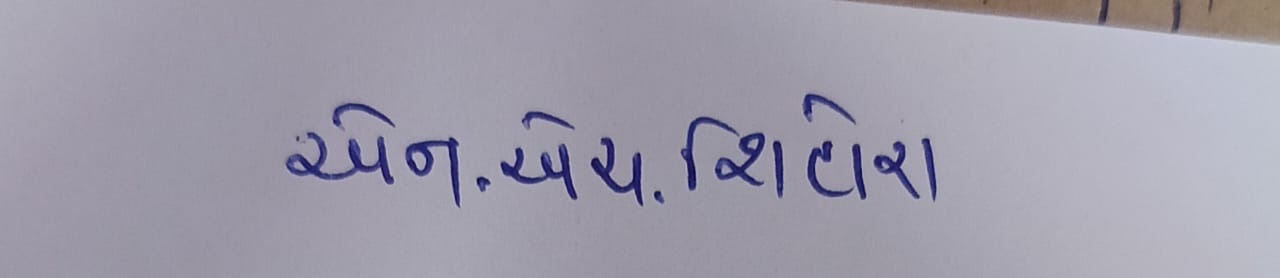 એન.એચ.શિહોરા